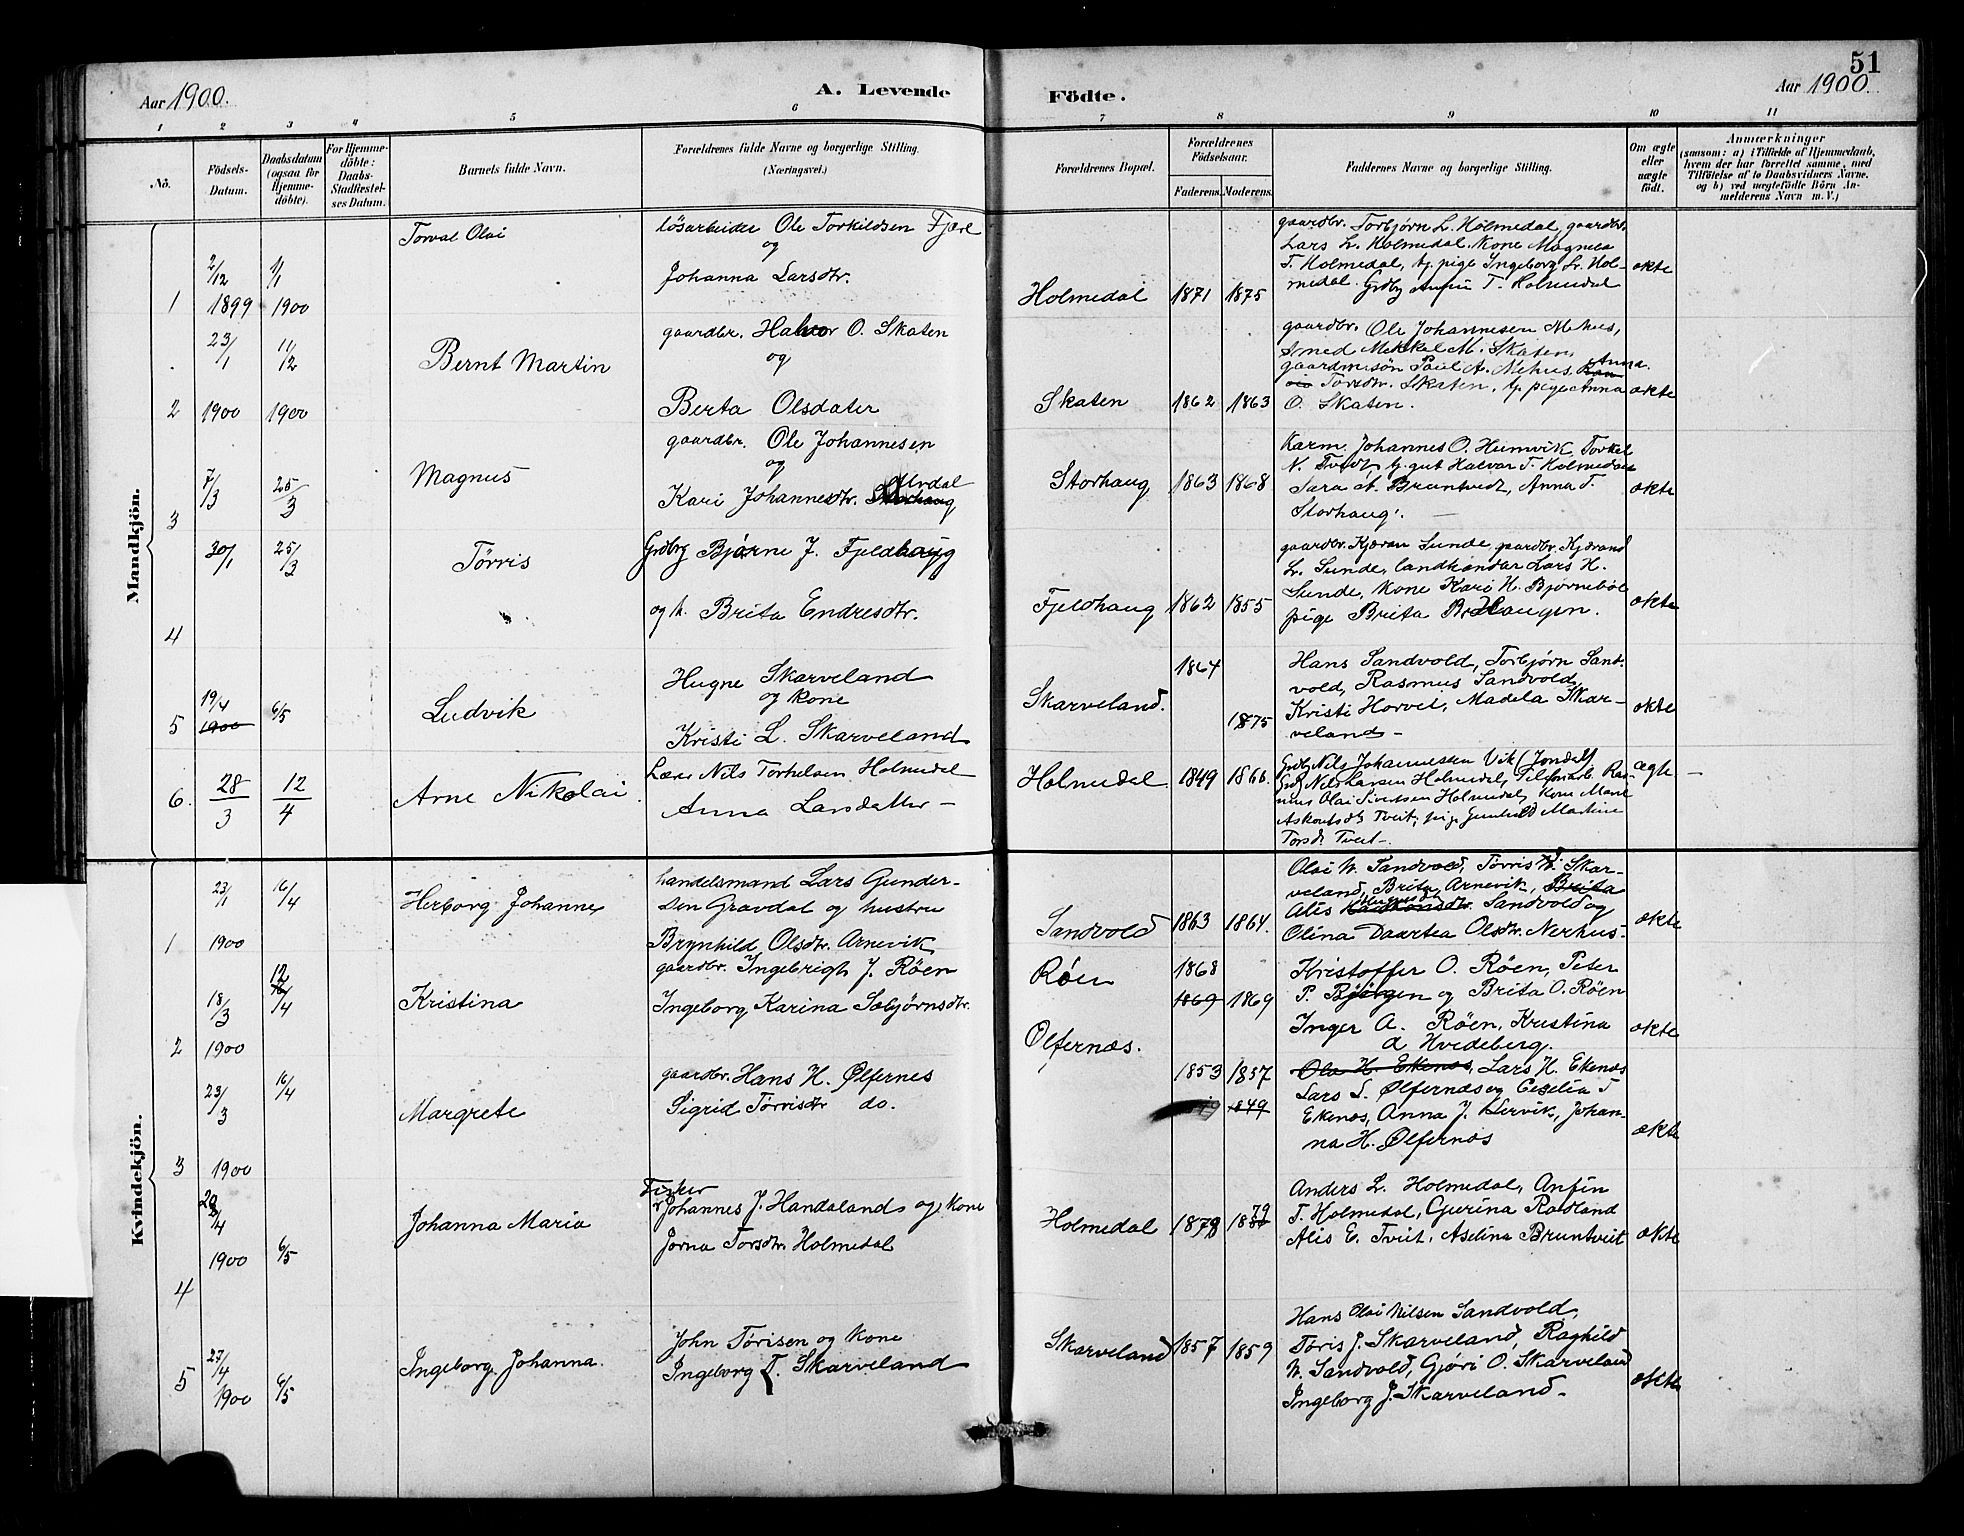 51
Aar 1900.
A. Levende Födte.
Aar 1900.
1 2 3 4 5 6 7 8 9 10 11
No.
Födsels-Datum.
Daabsdatum (ogsaa for Hjemme-döbte).
For Hjemme-döbte: Daabs-Stadfæstel-ses Datum.
Barnets fulde Navn.
Forældrenes fulde Navne og borgerlige Stilling.
(Næringsvei.)
Forældrenes Bopæl.
Forældrenes Födselsaar.
Faderens. Moderens.
Faddernes Navne og borgerlige Stilling.
Om ægte eller uægte födt.
Anmærkninger
(saasom: a) i Tilfælde af Hjemmedaab,
hvem der har forrettet samme, med
Tilföielse af to Daabsvidners Navne.
og b) ved uægtefödte Börn An-
melderens Navn m.V.)
Mandkjön.
1 2/12 1899 1/1 1900
Torval Olai
lösarbeider Ole Torkildsen Fjære
og
Johanna Larsdtr.
Holmedal 1871 1875
gaardbr. Torbjørn L. Holmedal, gaardbr.
Lars L. Holmedal. Kone Magnela
T. Holmedal, tj. pige Ingeborg Lr. Hol-
medal. Grdbg Anfin T. Holmedal
ekte
2 23/1 1900 11/2 1900
Bernt Martin
gaardbr. Halvor O. Skaten
og
Berta Olsdater
Skaten 1862 1863
gaardbr. Ole Johannesen Mehus,
smed Mekkel M. Skaten,
gaardmsøn Paul A. Mehus, Anna
Torsdtr. Skaten, tj. pige Anna
O. Skaten.
ekte
3 7/3 25/3
Magnus
gaardbr. Ole Johannesen
og
Kari Johannesdtr. Storhaug
Storhaug 1863 1868
Karm. Johannes O. Humvik, Torkel
N. Tvedt, tj. gut Halvar T. Holmedal
Sara A. Bruntvedt, Anna T.
Storhaug.
ekte
4 30/1 25/3
Tørris
Grdbrg Bjørne J. Fjeldhaug
og h. Brita Endresdtr.
Fjeldhaug 1862 1855
gaardbr. Kjæran Sunde, gaardbr. Kjærand
L. Sunde, landhandlar Lars H.
Sunde, Kone Kari H. Bjørnebøl
pige Brita Br Haugen.
ekte
5 19/4 1900 6/5
Ludvik
Hugne Skarveland
og kone
Kristi L. Skarveland
Skarveland. 1864 1875
Hans Sandvold, Torbjørn Sand-
vold, Rasmus Sandvold,
Kristi Horvei, Madela Skar-
veland -
ekte
6. 28/3 12/4
Arne Nikolai
Lærer Nils Torkelsen Holmedal
Anna Larsdatter -
Holmedal 1849 1866.
Grdbg Nils Johannessen Vik (Jondal)
Grdbg Nils Hansen Holmedal, Ras-
mus Olai Sivertsen Holmedal, Kone Mari
Tveit, pige Gunhild Martine
Torsdr Tveit -.
ægte -
Kvindekjön.
1 23/1 1900 16/4
Herborg Johanne
handelsmand Lars Gunder-
sen Gravdal og hustru
Brynhild Olsdtr. Arnevik
Sandvold 1863 1864.
Olai W. Sandvold, Tørris J. Skar-
veland, Brita Arnevik, Brita
Alis Sandvold og
Olina Daartea Olsdtr. Nerhus.
ekte
2 18/3 1900 12/4
Kristina
gaardbr. Ingebrigt J. Røen
Ingeborg Karina Sebjørnsdtr.
Røen 1868 1869 1869
Kristoffer O. Røen, Peter
P. Bjørgen og Brita O. Røen
Inger A. Røen, Kristina
A Hvideberg.
ekte
3 23/3 1900 16/4
Margrete
gaardbr. Hans H. Ølfernes
Sigrid Tørrisdtr do.
Ølfernæs. 1853 1857 1849
Ola H. Ekenæs, Lars H. Ekenæs
Lars L. Ølfernæs og Ceselia T
Ekenæs, Anna J. Lervik, Johan-
na H. Ølfernæs
ekte
4 28/4 1900 6/5
Johanna Maria
Fisker
Johannes J. Handeland og Kone
Jorna Torsdtr Holmedal
Holmedal 1878 1879
Anders L. Holmedal, Anfin
T. Holmedal, Gurina Rødland
Alis E. Tveit, Aselina Bruntveit
ekte
5 27/4 1900 6/5
Ingeborg Johanna.
John Tørisen og Kone
Ingeborg T. Skarveland
Skarveland 1857 1859
Hans Olai Nilsen Sandvold,
Tøris J. Skarveland, Raghild
W. Sandvold, Gjøri O. Skarveland
Ingeborg J. Skarveland -
ekte